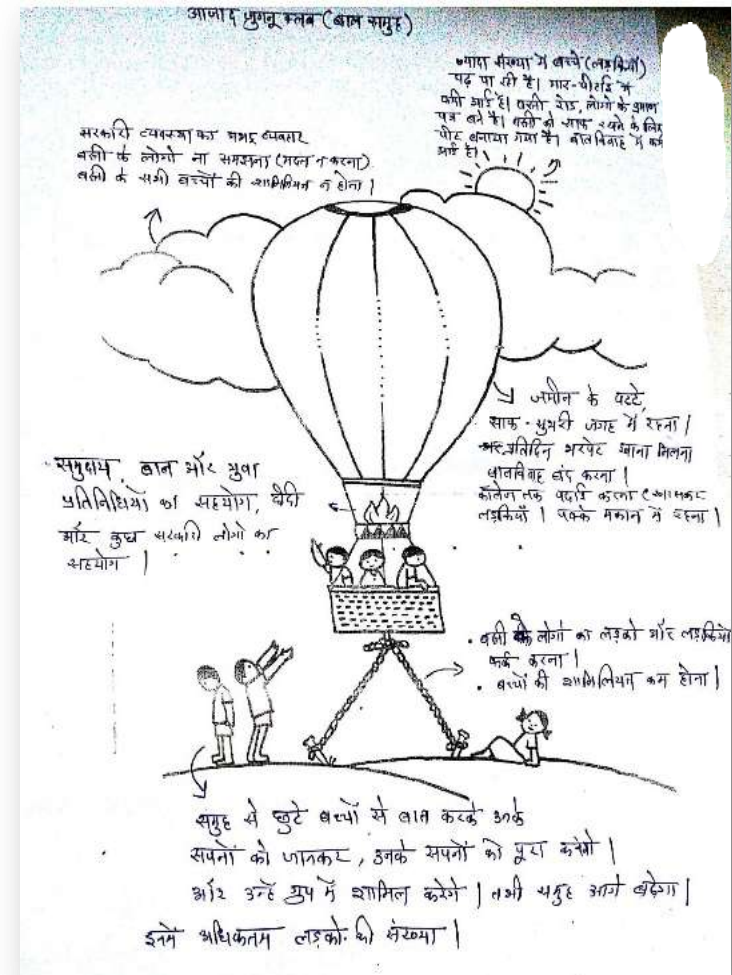 आजाद जुगनू क्लब (बाल समुह)
ज्यादा संख्या में बच्चे (लड़कियाँ)
पढ़ पा रही है। मार-पीटाई में
कमी आई है। बस्ती रोड, लोगो के प्रमाण
पत्र बने है। बस्ती को साफ रखने के लिए
बनाया गया है। बालविवाह में कमी
आई है।
सरकारी व्यवस्था का अभद्र व्यवहार
बस्ती के लोगो ना समझना (मदद न करना).
बस्ती के सभी बच्चों की शामिलियत न होना।
जमीन के पटटे,
साफ-सुथरी जगह में रहना।
प्रतिदिन भरपेट खाना मिलना
बालविवाह बंद करना।
कॉलेज तक पढाई करना (खासकर
लड़कियाँ। पक्के मकान में रहना।
समुदाय, बाल और युवा
प्रतिनिधियों का सहयोग, दीदी
और कुछ सरकारी लोगो का
सहयोग।
• बस्ती के लोगो का लड़को और लड़कियो
फर्क करना।
• बच्चों की शामिलियत कम होना।
समुह से छुटे बच्चों से बात करके उनके
सपनों को जानकर, उनके सपनों को पूरा करेंगे।
और उन्हें ग्रुप में शामिल करेगे। तभी समुह आगे बढ़ेगा।
इनमें अधिकतम लड़को की संख्या।